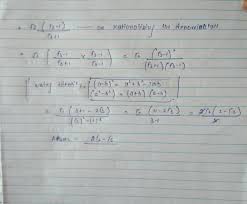 √2 (√3-1) / √3+1 on rationalizing the denominator
√2 (√3-1 / √3+1 × √3-1 / √3-1) = √2 (√3-1)² / (√3+1)(√3-1)
using identity (a-b)² = a²+b²-2ab
(a²-b²) = (a+b)(a-b)
= √2 (3+1-2√3) / (√3)²-(1)² = √2 (4-2√3) / 3-1 = 2√2 (2-√3) / 2